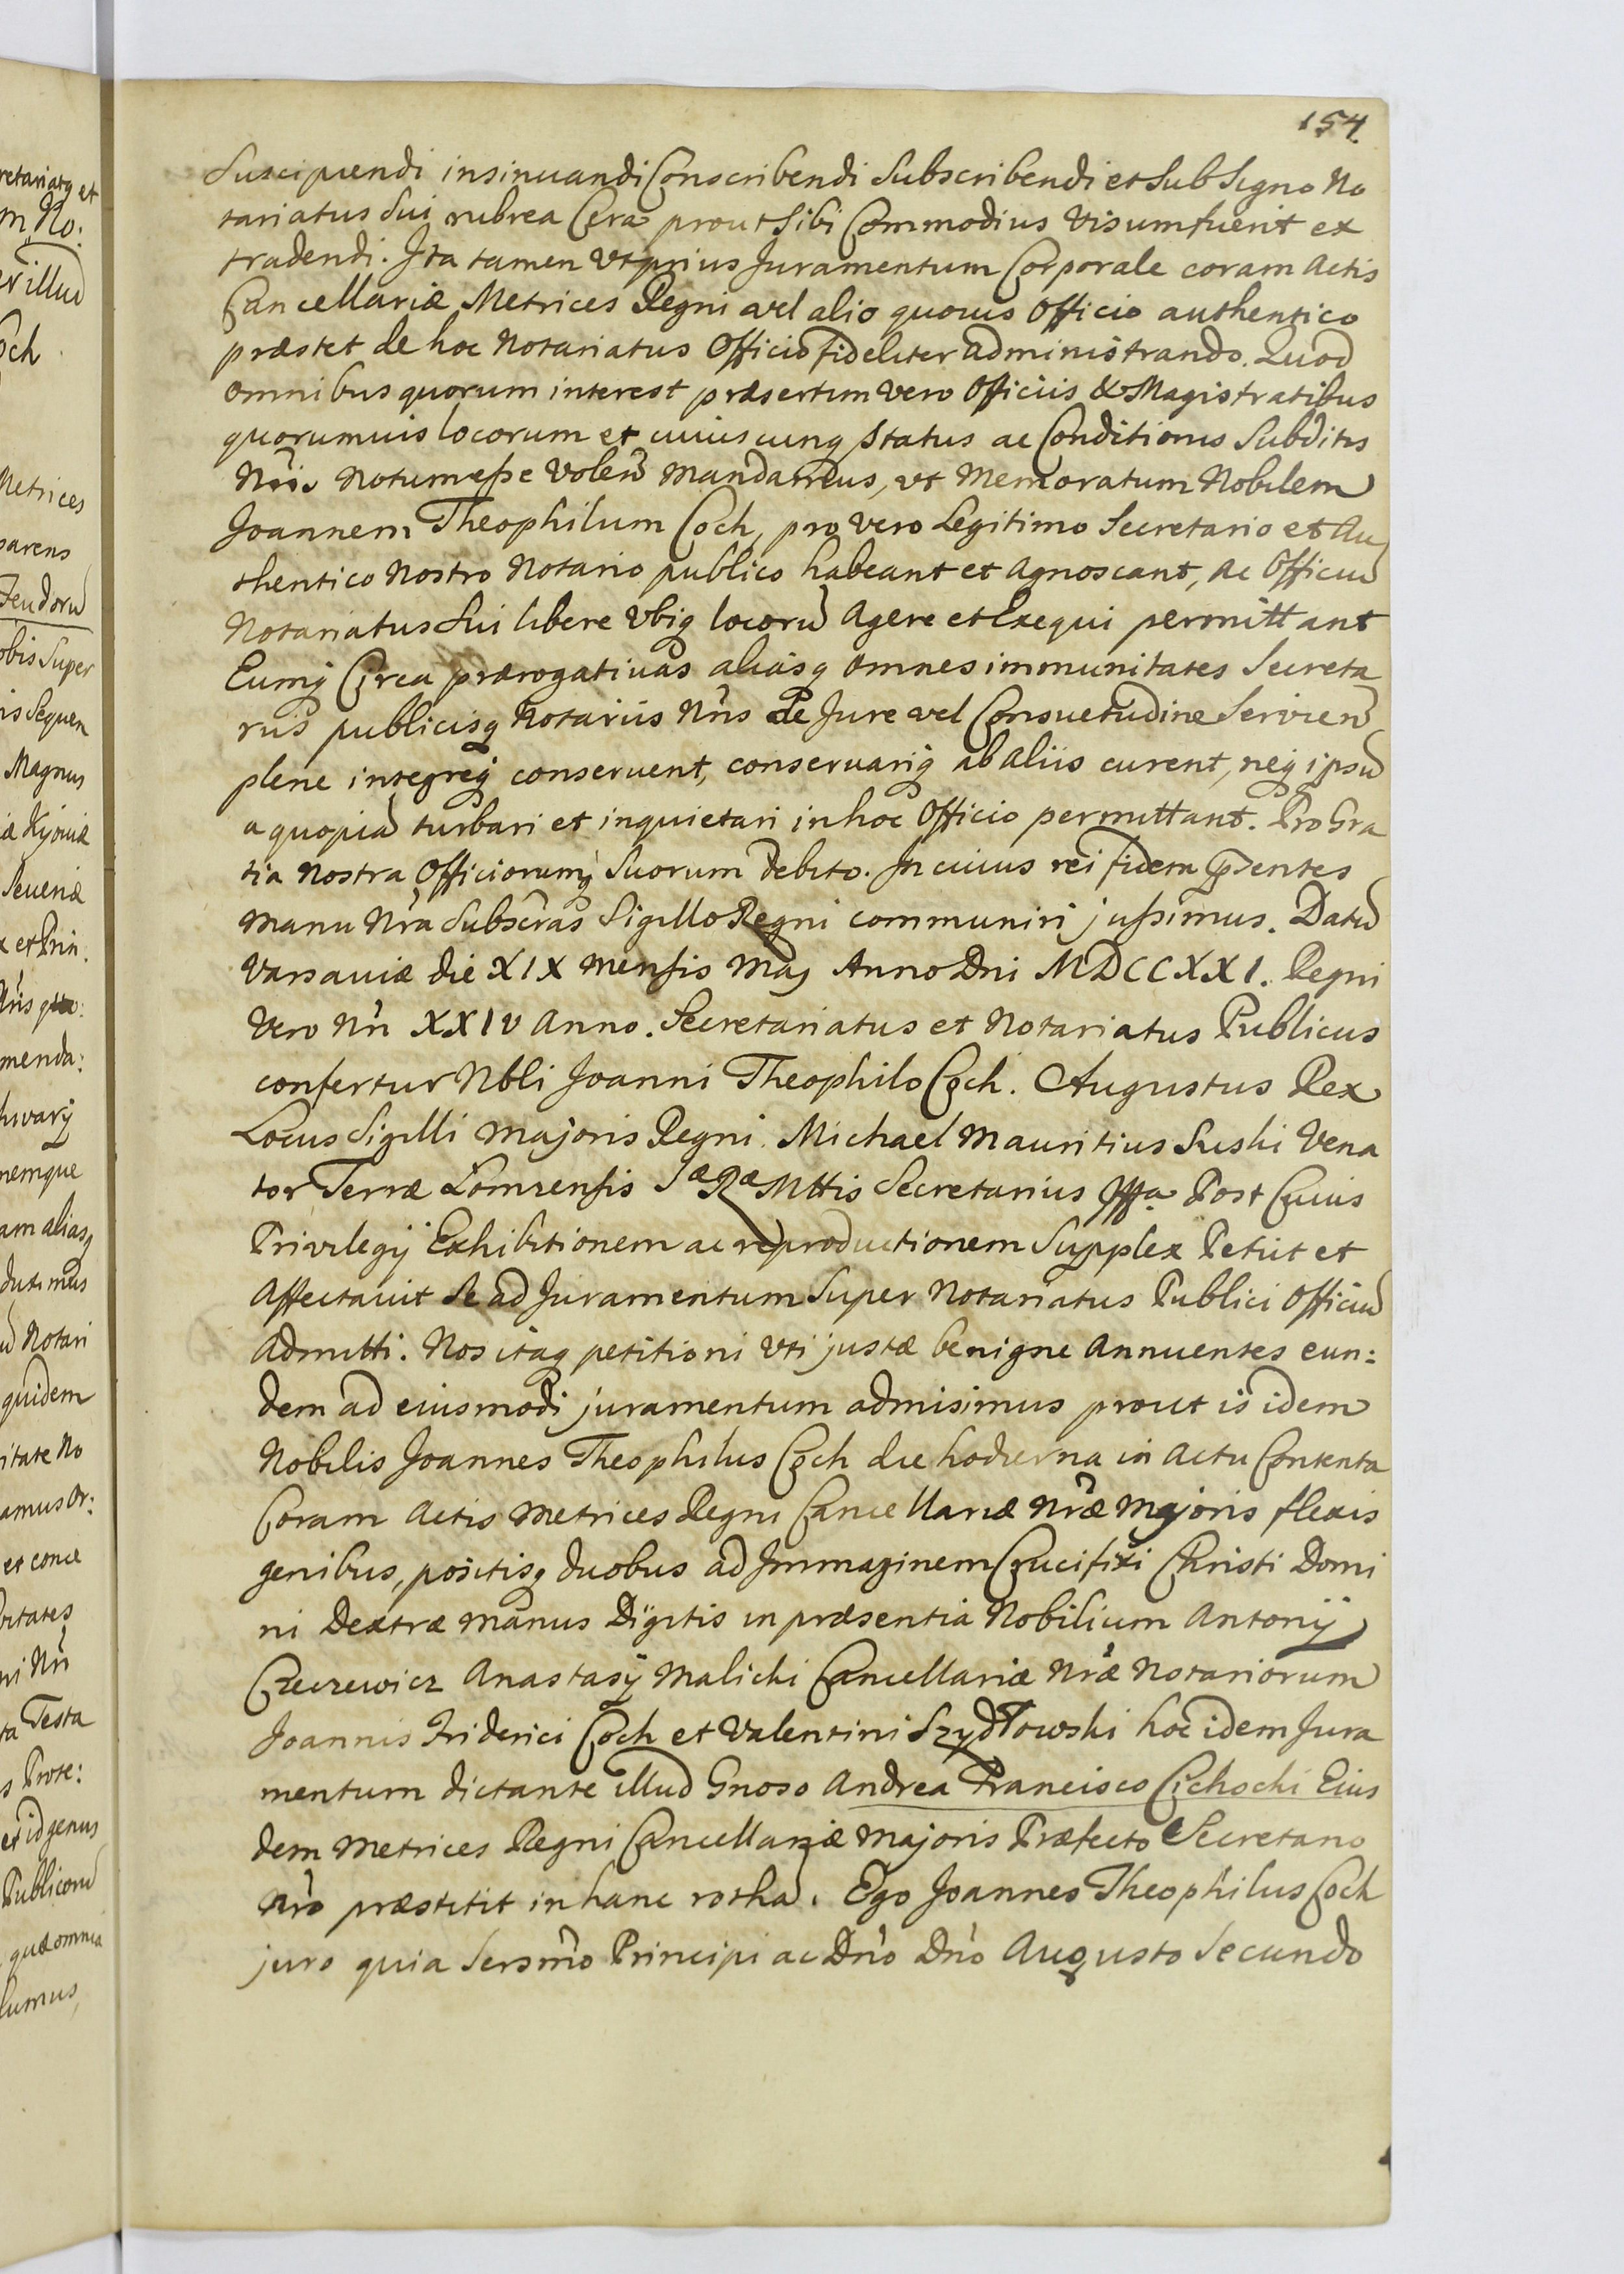 154.
Suscipiendi insinuandi Conscribendi Subscribendi et Sub Signo No
tariatus Sui rubrea Cera prout Sibi Commodius Visum fuerit ex
tradendi. Ita tamen Vt prius Juramentum Corporale coram Actis
Cancellariæ Metrices Regni avel alio quouis Officio authentico
præstet de hoc Notariatus Officio fideliter administrando. Quod
omnibus quorum interest præsertim vero Officiis & Magistratibus
quorumuis locorum et cuiuscunq Status ac Conditionis Subditis
Nris Notum esse Volen mandamus, vt Memoratum Nobilem
Joannem Theophilum Coch, pro Vero Legitimo Secretario et Au
thentico Nostro Notario publico habeant et Agnoscant, Ac Officiu
Notariatus Sui libere Vbiq locoru Agere et Exequi permittant
Eumq Circa prærogatiuas aliasq omnes immunitates Secreta
riis publicisq Notariis Nris De Jure vel Consuetudine Servien
plene integreq conseruent, conseruariq ab aliis curent, neq ipsu
a quopia turbari et inquietari in hoc Officio permittant. Pro Gra
tia Nostra Officiorumq Suorum Debito. In cuius rei fidem Psentes
Manu Nra Subscras Sigillo Regni communiri jussimus. Datu
Varsauiæ Die XIX Mensis Maij Anno Dni MDCCXXI. Regni
Vero Nri XXIV Anno. Secretariatus et Notariatus Publicus
confertur Nbli Joanni Theophilo Coch. Augustus Rex
Locus Sigilli Majoris Regni. Michael Mauritius Suski Vena
tor Terræ Lomzensis Sæ Ræ Mttis Secretarius Mppa. Post Cuius
Privilegij Exhibitionem ac reproductionem Supplex Petiit et
Affectauit Se ad Juramentum Super Notariatus Publici Officiu
Admitti. Nos itaq petitioni Vti justæ benigne Annuentes eun:
dem ad eiusmodi juramentum admisimus prout is idem
Nobilis Joannes Theophilus Coch die hodierna in Actu Contenta
Coram Actis Metrices Regni Cancellariæ Nræ Majoris flexis
genibus, positisq duobus ad Immaginem Crucifixi Christi Domi
ni Dextræ Manus Digitis in præsentia Nobilium Antonij
Czeczewicz Anastasij Malicki Cancellariæ Nræ Notariorum
Joannis Friderici Coch et Valentini Szydłowski hoc idem Jura
mentum dictante illud Gnoso Andrea Francisco Cichocki Eius
dem Metrices Regni Cancellariæ Majoris Præfecto Secretario
Nro præstitit in hanc rotha. Ego Joannes Theophilus Coch
juro quia Sersmo Principi ac Dno Dno Augusto Secundo